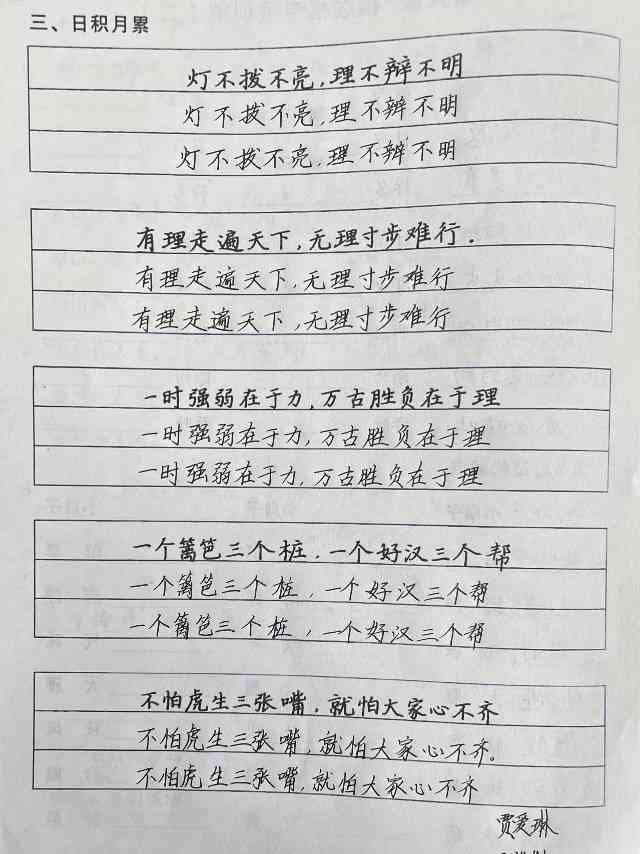 三、日积月累
灯不拨不亮,理不辩不明
灯不拨不亮,理不辩不明
灯不拨不亮,理不辩不明
有理走遍天下,无理寸步难行.
有理走遍天下,无理寸步难行
有理走遍天下,无理寸步难行
一时强弱在于力,万古胜负在于理
一时强弱在于力,万古胜负在于理
一时强弱在于力,万古胜负在于理
一个篱笆三个桩,一个好汉三个帮
一个篱笆三个桩,一个好汉三个帮
一个篱笆三个桩,一个好汉三个帮
不怕虎生三张嘴,就怕大家心不齐
不怕虎生三张嘴,就怕大家心不齐。
不怕虎生三张嘴,就怕大家心不齐
贾爱琳